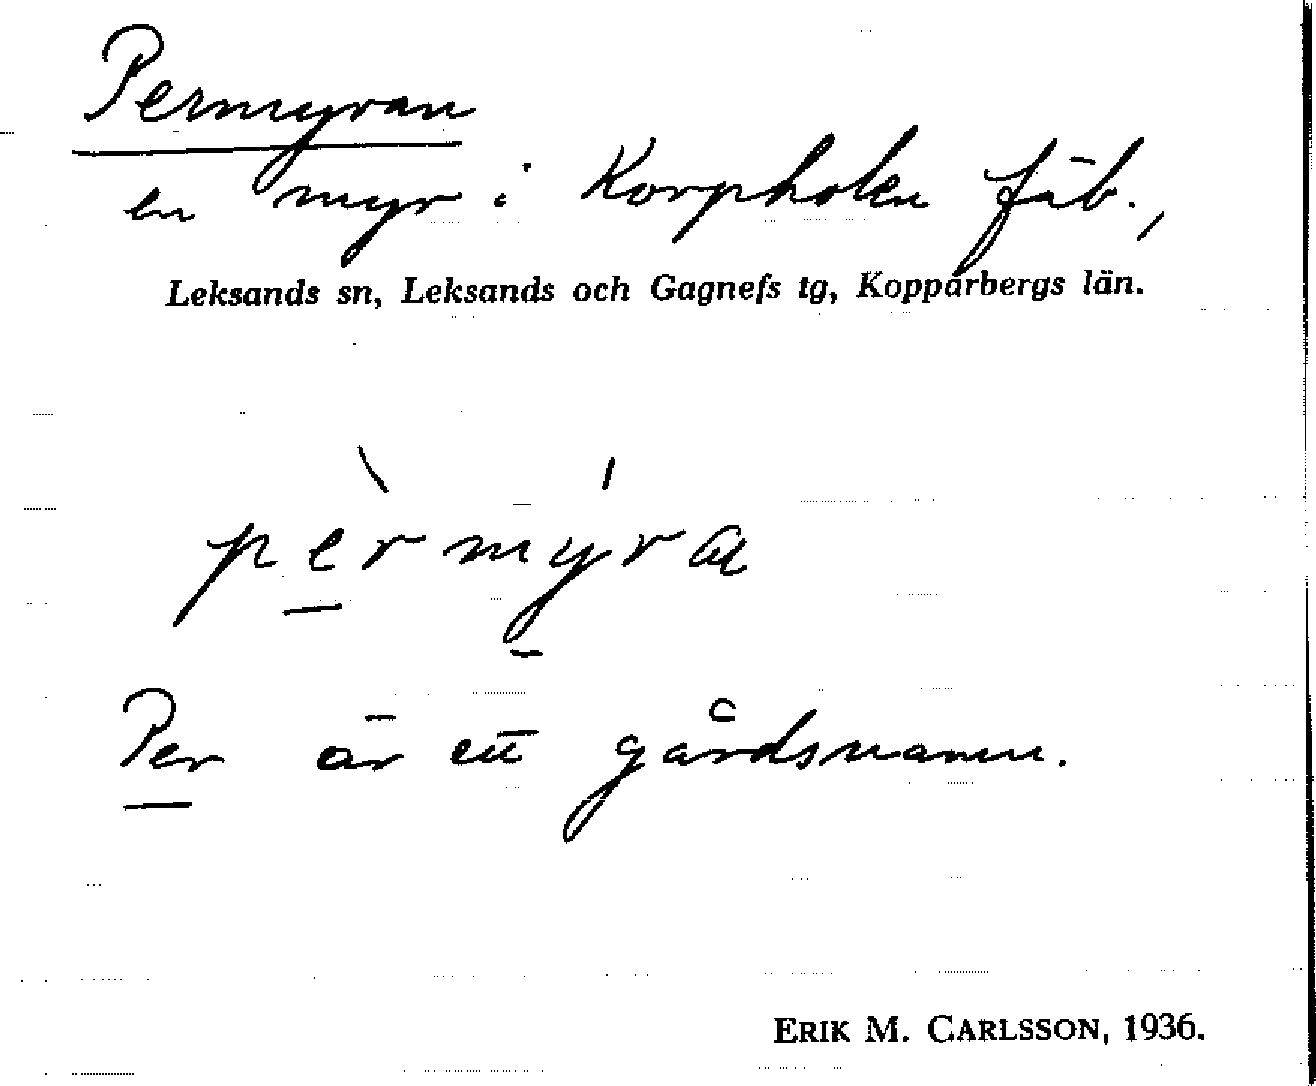 Permyran
en myr i Korpholen fäb.,
Leksands sn, Leksands och Gagnefs tg, Kopparbergs län.
pèrmýra
Per är ett gårdsnamn.
ERIK M. CARLSSON, 1936.